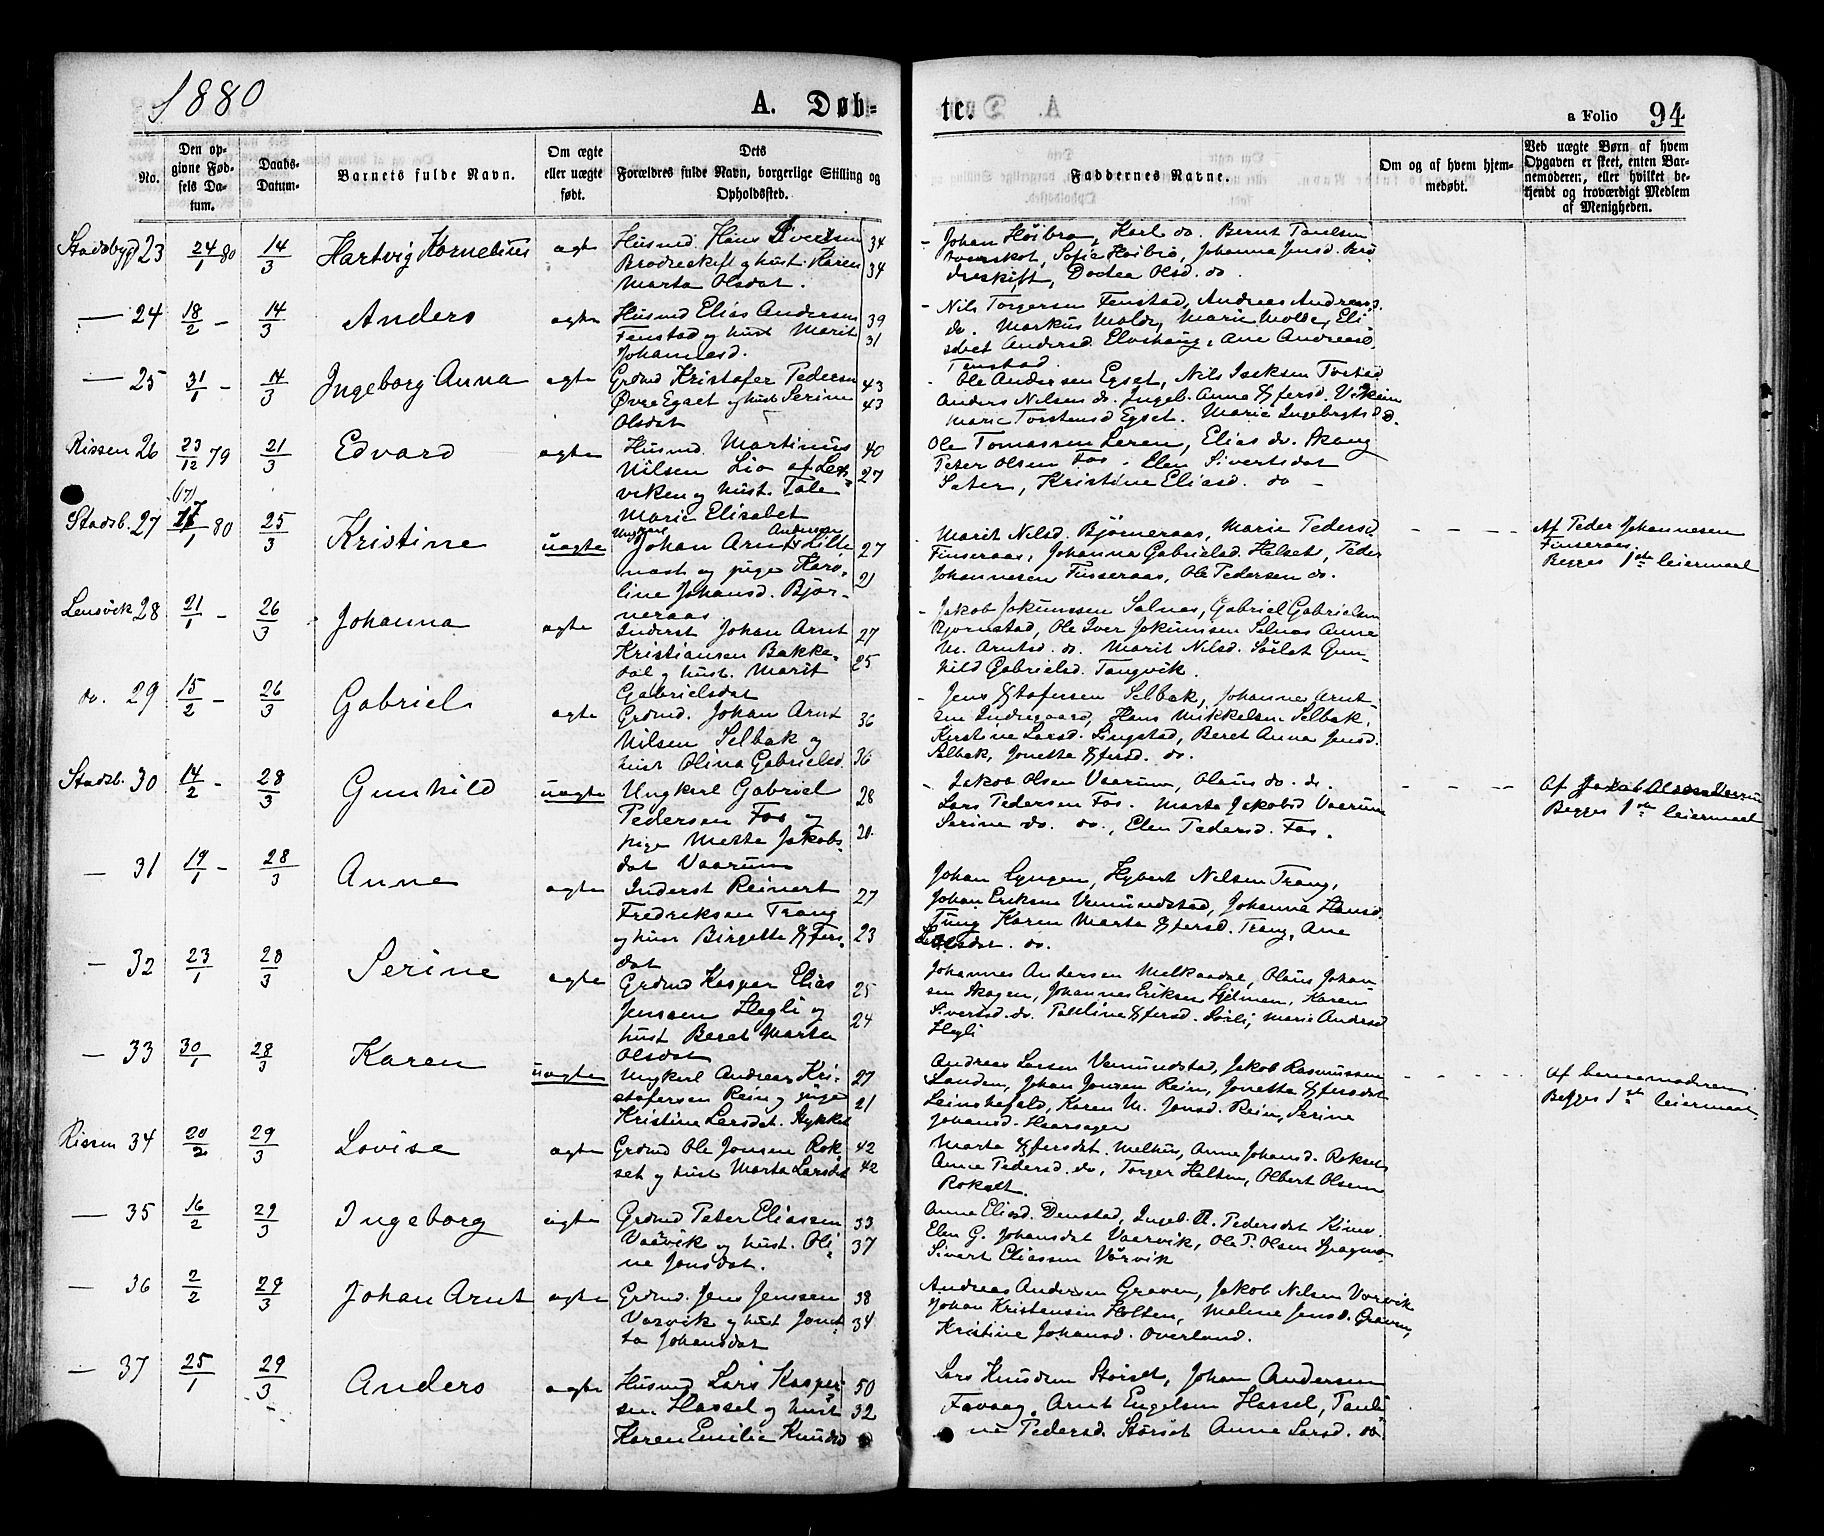 1880
A. Døb-
te.
a Folio 94
No.
Den op-
givne Fød-
sels Da-
tum.
Daabs-
Datum.
Barnets fulde Navn.
Om ægte
eller uægte
født.
Dets
Forældres fulde Navn, borgerlige Stilling og
Opholdssted.
Faddernes Navne.
Om og af hvem hjem-
medøbt.
Ved uægte Børn af hvem
Opgaven er skeet, enten Bar-
nemoderen, eller hvilket be-
kjendt og troværdigt Medlem
af Menigheden.
Stadsbygd 23 24/1 80 14/3 Hartvig Kornelius ægte
Husmd. Hans Sivertsen 34
Brødreskift og hust. Karen 34
Marta Olsdat.
- Johan Høibro, Karl do. Bernt Paulsen
Sofie Høibro, Johanna Jensd. Brø
dreskift, Dortea Olsd. do.
— 24 18/2 – 14/3 Anders ægte
Husmd Elias Andersen 39
Fenstad og hust Marit 31
Johannesd.
- Nils Torgersen Fenstad, Andreas Andreas.
do. Markus Molde, Marie Molde, Eli
sabet Andersd. Elvehaug, Ane Andreasd
Fenstad
— 25 31/1 – 14/3 Ingeborg Anna ægte
Grdmd Kristofer Pedersen 43
Øvre Egset og hust Serine 43
Olsdat
- Ole Andersen Egset, Nils Isaksen
Anders Nilsen do. Ingeb. Anna Ejfersd.
Marie Torstensd Egset. Marie Ingebrigtsd do.
Rissen 26 23/12 79 21/3 Edvard ægte
Husmd. Martinus 40
Nilsen Lio af Leks- 27
viken og hust. Tale
Marie Elisabet
Ole Tomassen Leren, Elias do. Skaug
Peter Olsen Fos. Elen Sivertsdat
Sæter, Kristine Eliasd. do –
(17)
Stadsb. 27 17/1 80 25/3 Kristine uægte
Ungkarl Andersen
Johan Arnt Lille 27
næst og pige Karo- 21
line Johansd. Bjør-
neraas
Marit Nilsd. Bjørneraas, Marie Pedersd
Finseraas, Johanna Gabrielsd. Helset, Peder
Johannesen Finseraas, Ole Pedersen do.
Af Peder Johannesen
Finseraas.
Begges 1ste leiermaal
Lensvik 28 21/1 – 26/3 Johanna ægte
Inderst Johan Arnt 27
Kristiansen Bakke- 25
dal og hust. Marit
Gabrielsdat
- Jakob Jokumssen Selnes, Gabriel Gabrielsen
Bjørnstad, Ole Iver Jokumsen Selnes Anne
M. Arntsd. do. Marit Nilsd. Sølat Gun-
hild Gabrielsd. Tangvik.
do. 29 15/2 – 26/3 Gabriel ægte
Grdmd. Johan Arnt 36
Nilsen Selbæk og
hust Olina Gabrielsd 36
- Jens Kristofersen Selbæk, Johannes Arnt-
sen Indregaard, Hans Mikkelsen Selbæk,
Kirstine Larsd. Singstad, Beret Anna Jensd.
Selbæk, Jonetta Ejfersd. do.
Stadsb. 30 14/2 – 28/3 Gunhild uægte
Ungkarl Gabriel 28
Pedersen Fos og
pige Mette Jakobs- 20
dat Vaarum
- Jakob Olsen Vaarum, Olaus do. do.
Lars Pedersen Fos. Marta Jakobsd Vaarum
Serine do. do., Elen Pedersd. Fos.
Af Jakob Olsen Vaarum
Begges 1ste leiermaal
— 31 19/1 – 28/3 Anne ægte
Inderst Reinert 27
Fredriksen Trang
og hust Birgette Ejfers- 23
dat
Johan Lyngen, Hybert Nilsen Trang,
Johan Eriksen Vemundstad, Johanna Hansd.
Tung Karen Marta Ejfersd. Trang, Ane
Olsdat. do.
— 32 23/1 28/3 Serine ægte
Grdmd Kasper Elias 25
Jenssen Hegli og 24
hust Beret Marta
Olsdat
Johannes Andersen Melkaadal, Olaus Johan-
sen Skogen, Johannes Eriksen Hjelmen, Karen
Sivertsd. do. Pauline Ejfersd. Sørli, Marie Andersd
Hegli
— 33 30/1 28/3 Karen uægte
Ungkarl Andreas Kri- 27
stofersen Rein og pige 21
Kristine Larsdat. Stykket
Andreas Larsen Vemundstad, Jakob Rasmussen
Sanden, Johan Jonsen Rein, Jonetta Ejfersdat
Leinshefald, Karen M. Jonsd. Rein, Serine
Johansd. Haarsagen
Af barnemoderen
Begges 1ste leiermaal.
Rissen 34 20/2 29/3 Lovise ægte
Grdmd Ole Jonsen Rok- 42
set og hust Marta Larsdat 42
Marta Ejfersdat. Melhus, Anne Johansd. Rokset,
Anne Pedersd. do, Torger Halten, Olbert Olsen
Rokset.
— 35 16/2 29/3 Ingeborg ægte
Grdmd Peter Eliassen 33
Vaarvik og hust. Oli- 37
ne Jonsdat.
Anne Eliasd. Denstad, Ingeb. A. Pedersdat
Elen G. Johansdat Vaarvik, Ole P. Olsen
Sivert Eliassen Vorvik
— 36 2/2 29/3 Johan Arnt ægte
Grdmd. Jens Jenssen 38
Vorvik og hust Jonet- 34
ta Johansdat
Andreas Andersen Graven, Jakob Nilsen Vorvik
Johan Kristensen Holten, Malene Jensd. Graven,
Kristine Johansd. Overland.
— 37 25/1 29/3 Anders ægte
Husmd Lars Kasper 50
sen Hassel og hust 32
Karen Emilie Knudsd
Lars Knudsen Størset, Johan Andersen
Fovaag, Arnt Engelsen Hassel, Pauli
ne Pedersd. Størset Anne Larsd. do.